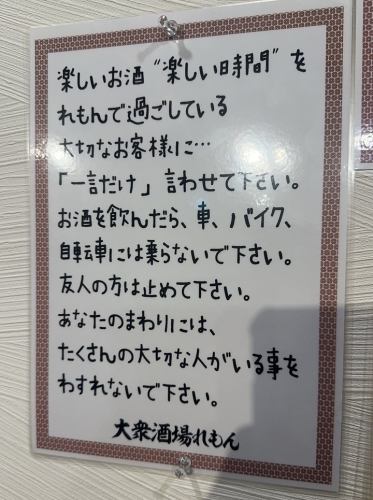 楽しいお酒“楽しい時間”を
れもんで過ごしている
大切なお客様に…
「一言だけ」言わせて下さい。
お酒を飲んだら、車、バイク、
自転車には乗らないで下さい。
友人の方は止めて下さい。
あなたのまわりには、
たくさんの大切な人がいる事を
わすれないで下さい。
大衆酒場れもん